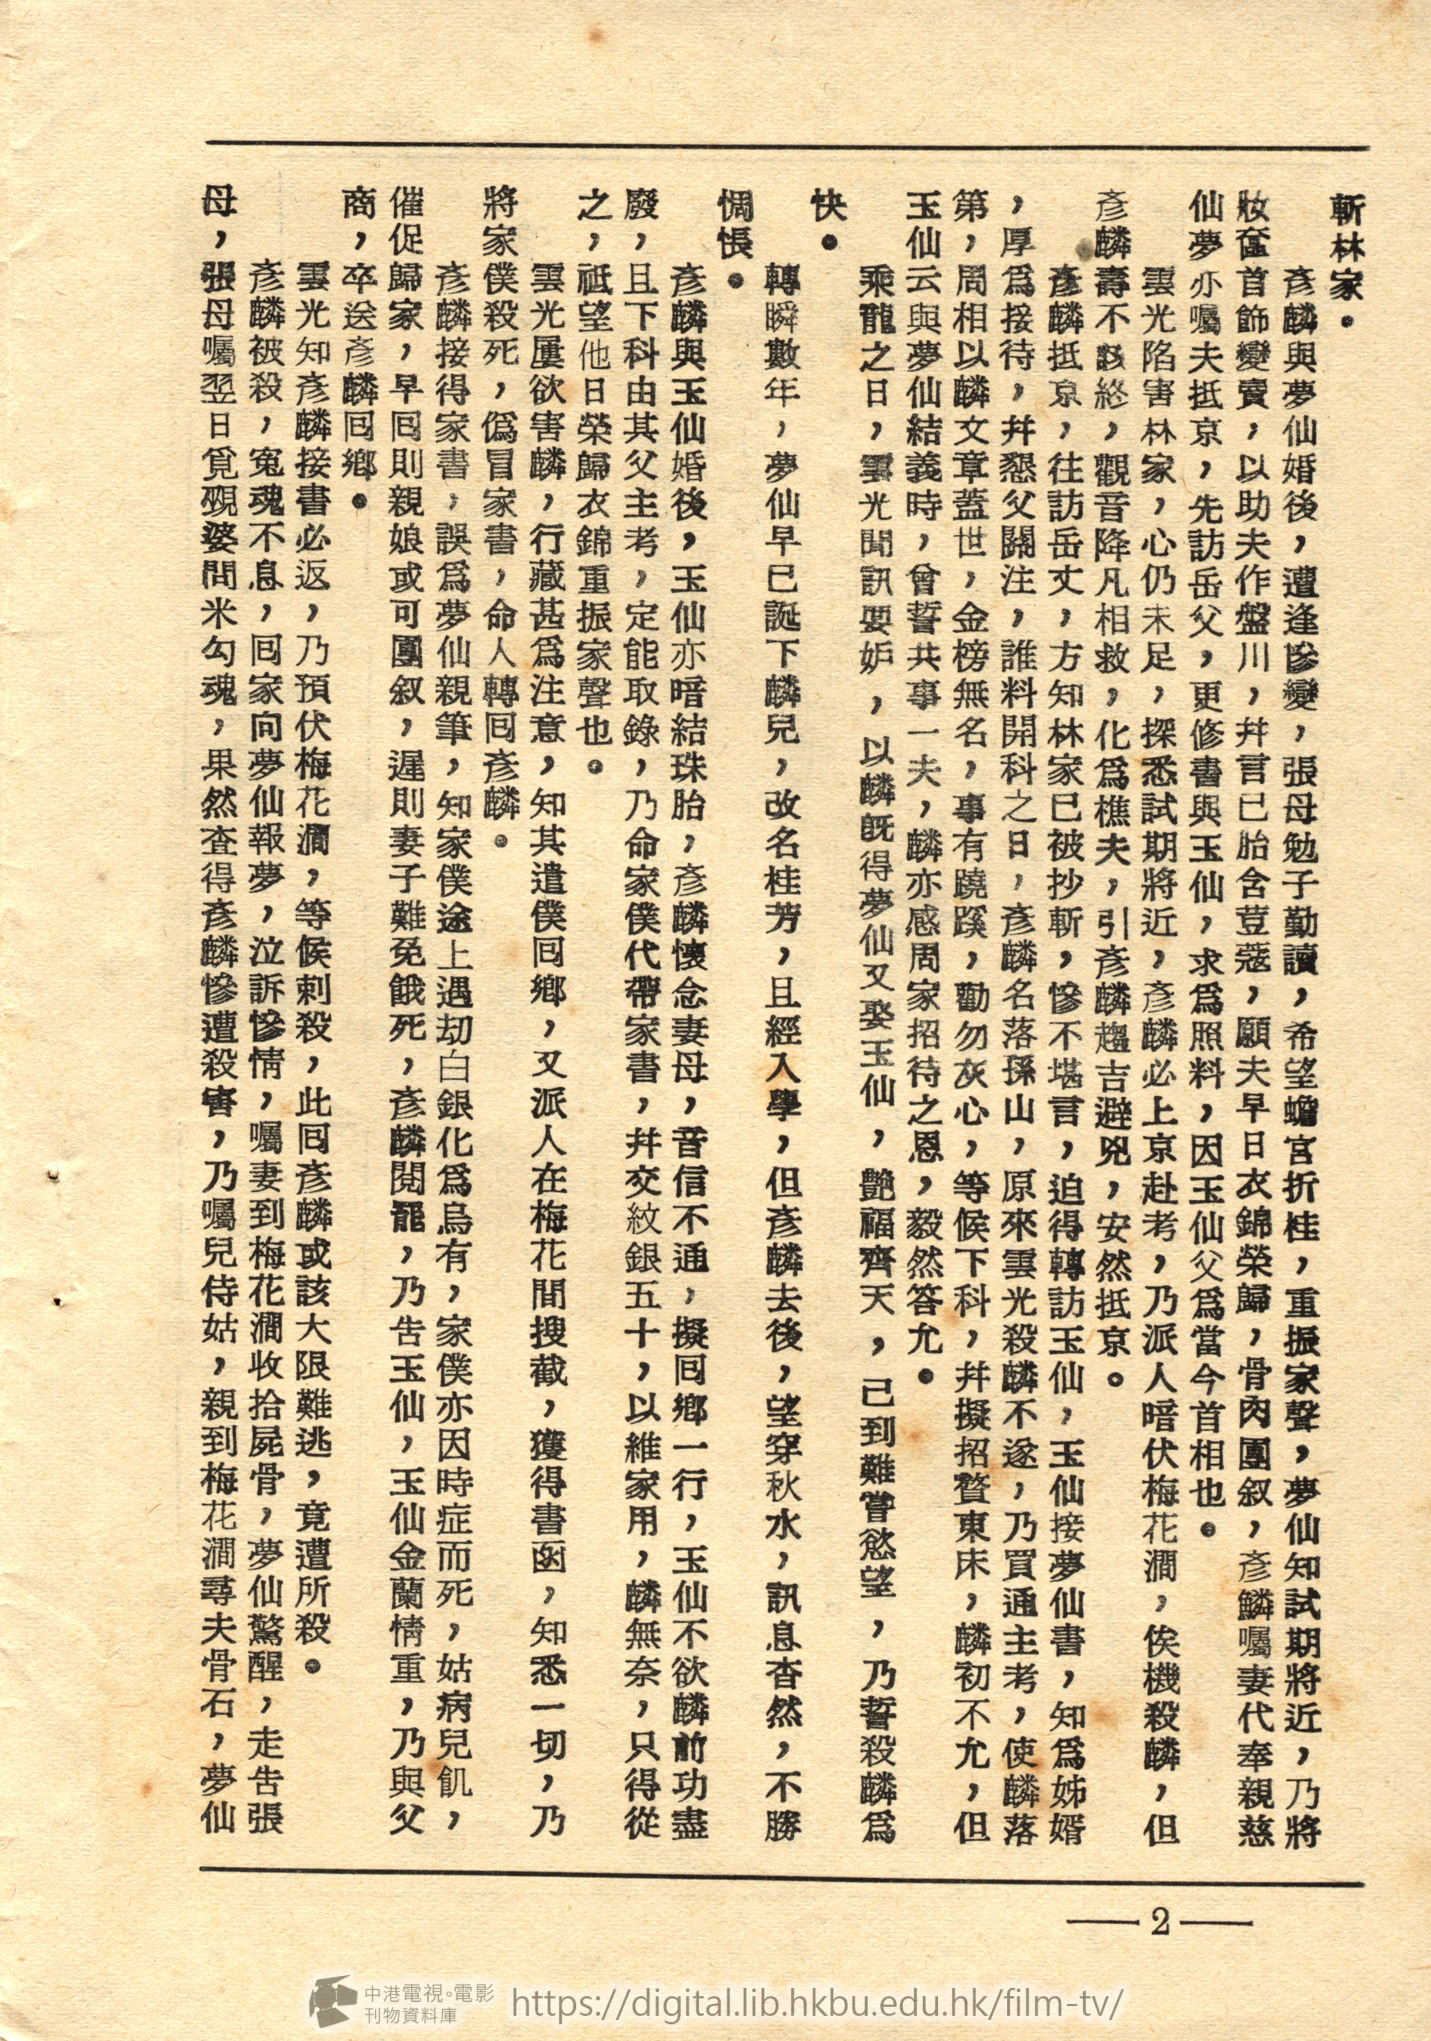 斬林家。
彥麟與夢仙婚後，遭逢慘變，張母勉子勤讀，希望蟾宮折桂，重振家聲，夢仙知試期將近，乃將
妝奩首飾變賣，以助夫作盤川，幷言已胎含荳蔻，願夫早日衣錦榮歸，骨肉團叙，彥鱗囑妻代奉親慈
仙夢亦囑夫抵京，先訪岳父，更修書與玉仙，求爲照料，因玉仙父爲當今首相也。
雲光陷害林家，心仍未足，探悉試期將近，彥麟必上京赴考，乃派人暗伏梅花澗，俟機殺麟，但
彥麟壽不該終，觀音降凡相救，化爲樵夫，引彥麟趨吉避兇，安然抵京。
彥麟抵京，往訪岳丈，方知林家巳被抄斬，慘不堪言，迫得轉訪玉仙，玉仙接夢仙書，知爲姊婿
，厚爲接待，幷懇父關注，誰料開科之日，彥麟名落孫山，原來雲光殺麟不遂，乃買通主考，使麟落
第，周相以麟文章蓋世，金榜無名，事有蹺蹊，勸勿灰心，等候下科，幷擬招贅東床，麟初不允，但
玉仙云與夢仙結義時，曾誓共事一夫，麟亦感周家招待之恩，毅然答允。
乘龍之日，雲光聞訊要妒，以麟旣得夢仙又娶玉仙，艷福齊天，己到難嘗慾望，乃誓殺麟爲
快。
轉瞬數年，夢仙早巳誕下麟兒，改名桂芳，且經入學，但彥麟去後，望穿秋水，訊息杳然，不勝
惆悵。
彥麟與玉仙婚後，玉仙亦暗結珠胎，彥麟懷念妻母，音信不通，擬囘鄕一行，玉仙不欲麟前功盡
廢，且下科由其父主考，定能取錄，乃命家僕代帶家書，幷交紋銀五十，以維家用，麟無奈，只得從
之，祗望他日榮歸衣錦重振家聲也。
雲光屢欲害麟，行藏甚爲注意，知其遣僕囘鄕，又派人在梅花間搜截，獲得書函，知悉一切，乃
將家僕殺死，僞冒家書，命人轉囘彥麟。
彥麟接得家書，誤爲夢仙親筆，知家僕途上遇刧白銀化爲烏有，家僕亦因時症而死，姑病兒飢，
催促歸家，早囘則親娘或可團叙，遲則妻子難免餓死，彥麟閱罷，乃吿玉仙，玉仙金蘭情重，乃與父
商，卒送彥麟囘鄕。
雲光知彥麟接書必返，乃預伏梅花澗，等候刺殺，此囘彥麟或該大限難逃，竟遭所殺。
彥麟被殺，寃魂不息，囘家向夢仙報夢，泣訴慘情，囑妻到梅花澗收拾屍骨，夢仙驚醒，走吿張
母，張母囑翌日覓覡婆問米勾魂，果然查得彥麟慘遭殺害，乃囑兒侍姑，親到梅花澗尋夫骨石，夢仙
—2—
中港電視。電影
刊物資料庫
https://digital.lib.hkbu.edu.hk/film-tv/